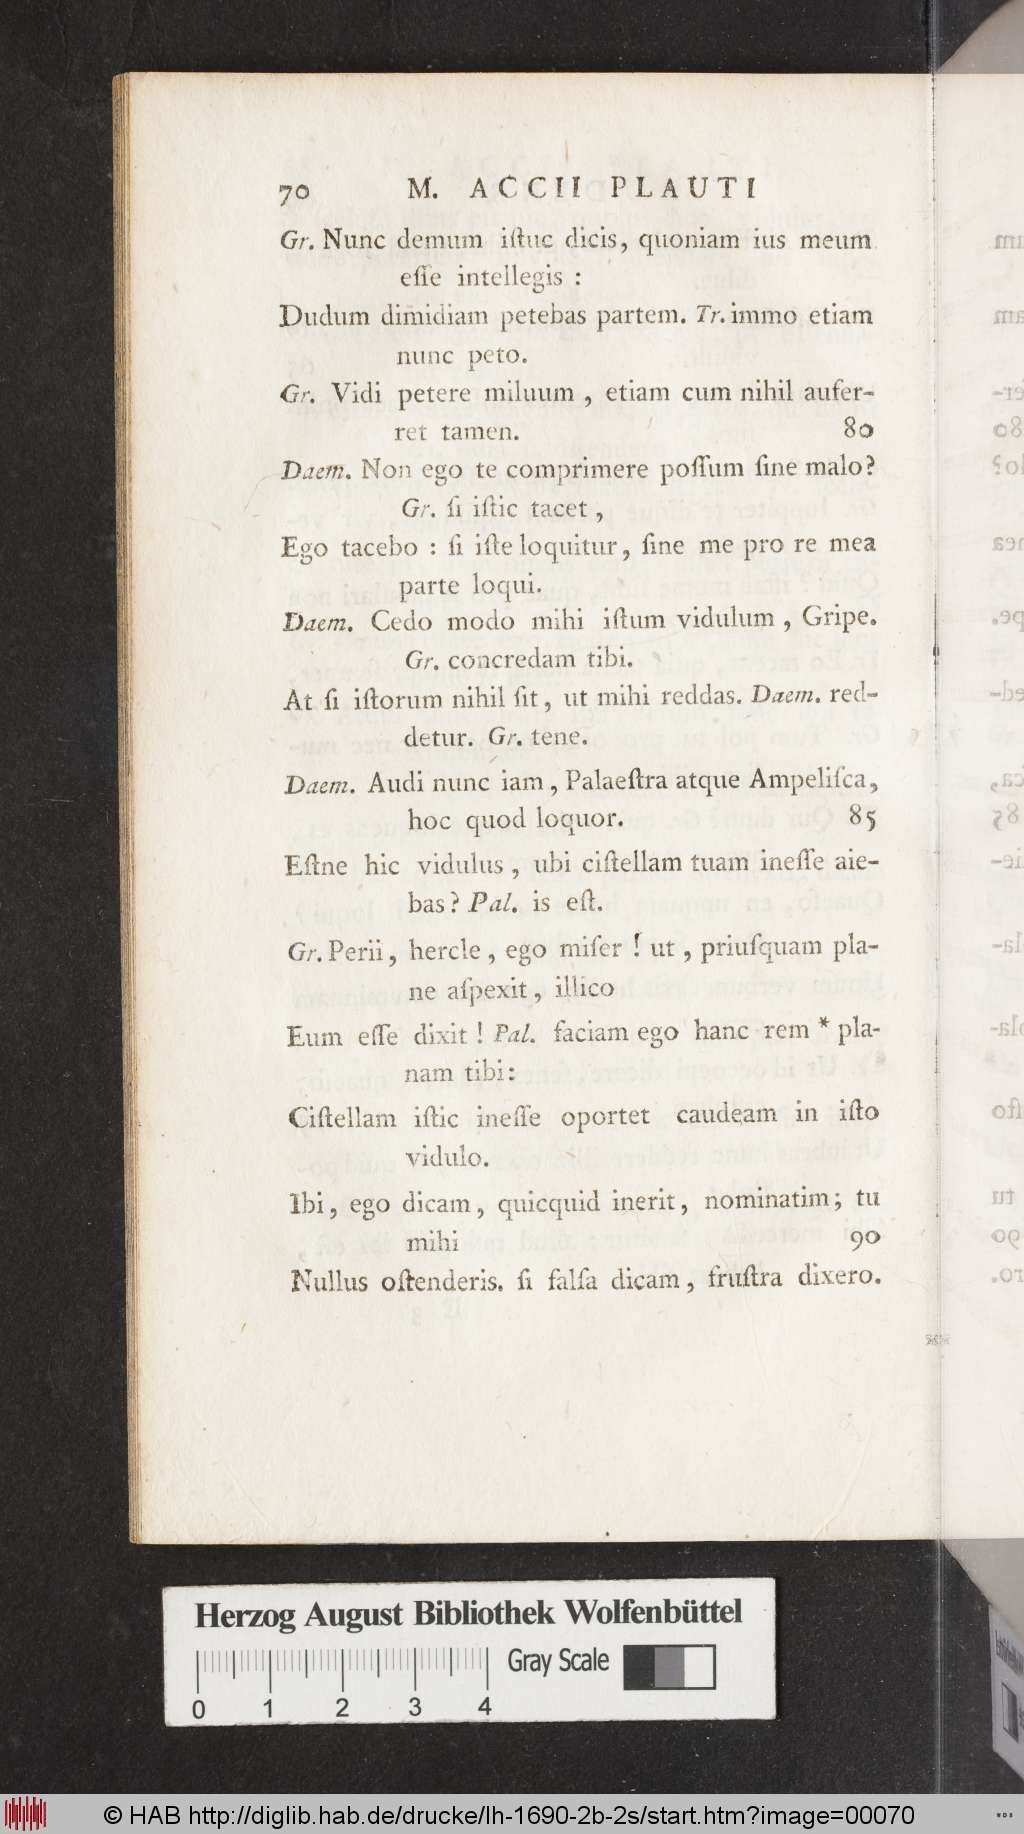 70 M. ACCII PLAUTI
Gr. Nunc demum iſtuc dicis, quoniam ius meum
eſſe intellegis :
Dudum dimidiam petebas partem. Tr. immo etiam
nunc peto.
Gr. Vidi petere miluum , etiam cum nihil aufer-
ret tamen. 80
Daem. Non ego te comprimere poſſum ſine malo?
Gr. ſi iſtic tacet ,
Ego tacebo : ſi iſte loquitur, ſine me pro re mea
parte loqui.
Daem. Cedo modo mihi iſtum vidulum , Gripe.
Gr. concredam tibi.
At ſi iſtorum nihil ſit , ut mihi reddas. Daem. red-
detur. Gr. tene.
Daem. Audi nunc iam , Palaeſtra atque Ampeliſca,
hoc quod loquor. 85
Eſtne hic vidulus , ubi ciſtellam tuam ineſſe aie-
bas ? Pal. is eſt.
Gr. Perii , hercle , ego miſer ! ut , priuſquam pla-
ne aſpexit , illico
Eum eſſe dixit ! Pal. faciam ego hanc rem * pla-
nam tibi:
Ciſtellam iſtic ineſſe oportet caudeam in iſto
vidulo.
Ibi , ego dicam , quicquid inerit , nominatim ; tu
mihi 90
Nullus oſtenderis. ſi falſa dicam , fruſtra dixero.
Herzog August Bibliothek Wolfenbüttel
Gray Scale
0 1 2 3 4
© HAB http://diglib.hab.de/drucke/lh-1690-2b-2s/start.htm?image=00070